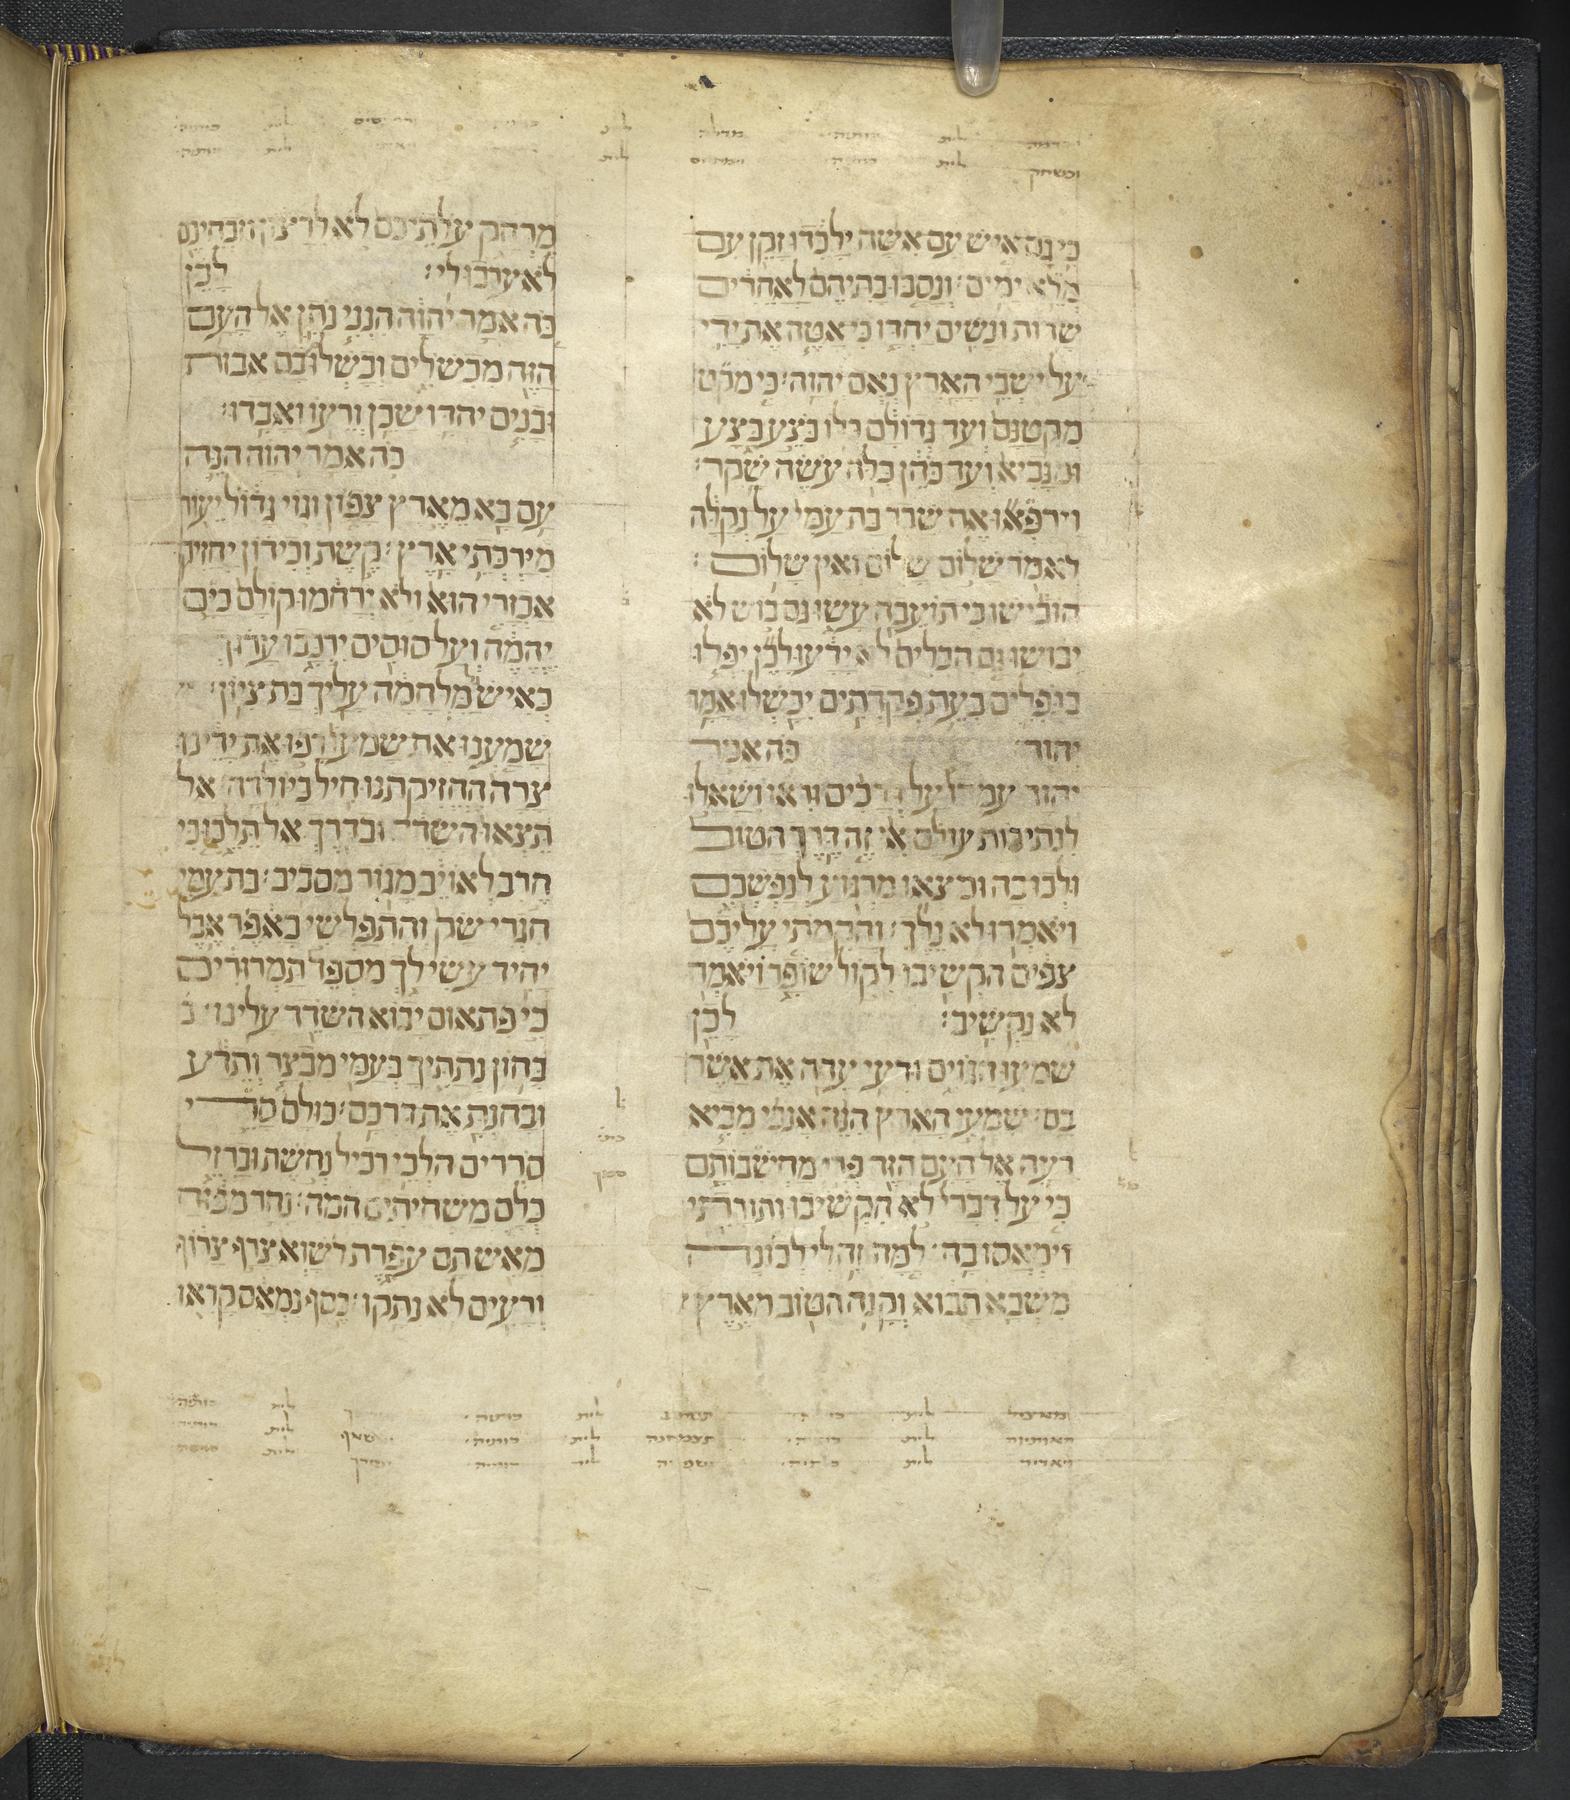 כי גם איש עם אשה ילכדו זקן עם
מלא ימים׃ ונסבו בתיהם לאחרים
שדות ונשים יחדו כי אטה את ידי
על ישבי הארץ נאם יהוה׃ כי מקט
מקטנם ועד גדולם כלו בצע בצע
ומנביא ועד כהן כלה עשה שקר׃
וירפאו את שבר בת עמי על נקלה
לאמר שלום שלום ואין שלום׃
הובישו כי תועבה עשו גם בוש לא
יבושו גם הכלים לא ידעו לכן יפלו
בנפלים בעת פקדתים יכשלו אמר
יהוה׃ כה אמר
יהוה עמדו על דרכים וראו ושאלו
לנתיבות עולם אי זה דרך הטוב
ולכו בה ומצאו מרגוע לנפשכם
ויאמרו לא נלך׃ והקמתי עליכם
צפים הקשיבו לקול שופר ויאמרו
לא נקשיב׃ לכן
שמעו הגוים ודעי עדה את אשר
בם׃ שמעי הארץ הנה אנכי מביא
רעה אל העם הזה פרי מחשבותם
כי על דברי לא הקשיבו ותורתי
וימאסו בה׃ למה זה לי לבונה
משבא תבוא וקנה הטוב מארץ
מרחק עלתיכם לא לרצון וזבחיכם
לא ערבו לי׃ לכן
כה אמר יהוה הנני נתן אל העם
הזה מכשלים וכשלו בם אבות
ובנים יחדו שכן ורעו ואבדו׃
כה אמר יהוה הנה
עם בא מארץ צפון וגוי גדול יעור
מירכתי ארץ׃ קשת וכידון יחזיקו
אכזרי הוא ולא ירחמו קולם כים
יהמה ועל סוסים ירכבו ערוך
כאיש למלחמה עליך בת ציון׃
שמענו את שמעו רפו את ידינו
צרה החזיקתנו חיל כיולדה׃ אל
תצאו השדה ובדרך אל תלכו כי
חרב לאויב מגור מסביב׃ בת עמי
חגרי שק והתפלשי באפר אבל
יחיד עשי לך מספד תמרורים
כי פתאום יבוא השדד עלינו׃ ב
בחון נתתיך בעמי מבצר ותדע
ובחנת את דרכם׃ כולם סרי
סררים הלכי רכיל נחשת וברזל
כלם משחיתים המה׃ נחר מפוח
מאש תם עפרת לשוא צרף צרוף
ורעים לא נתקו׃ כסף נמאס קראו